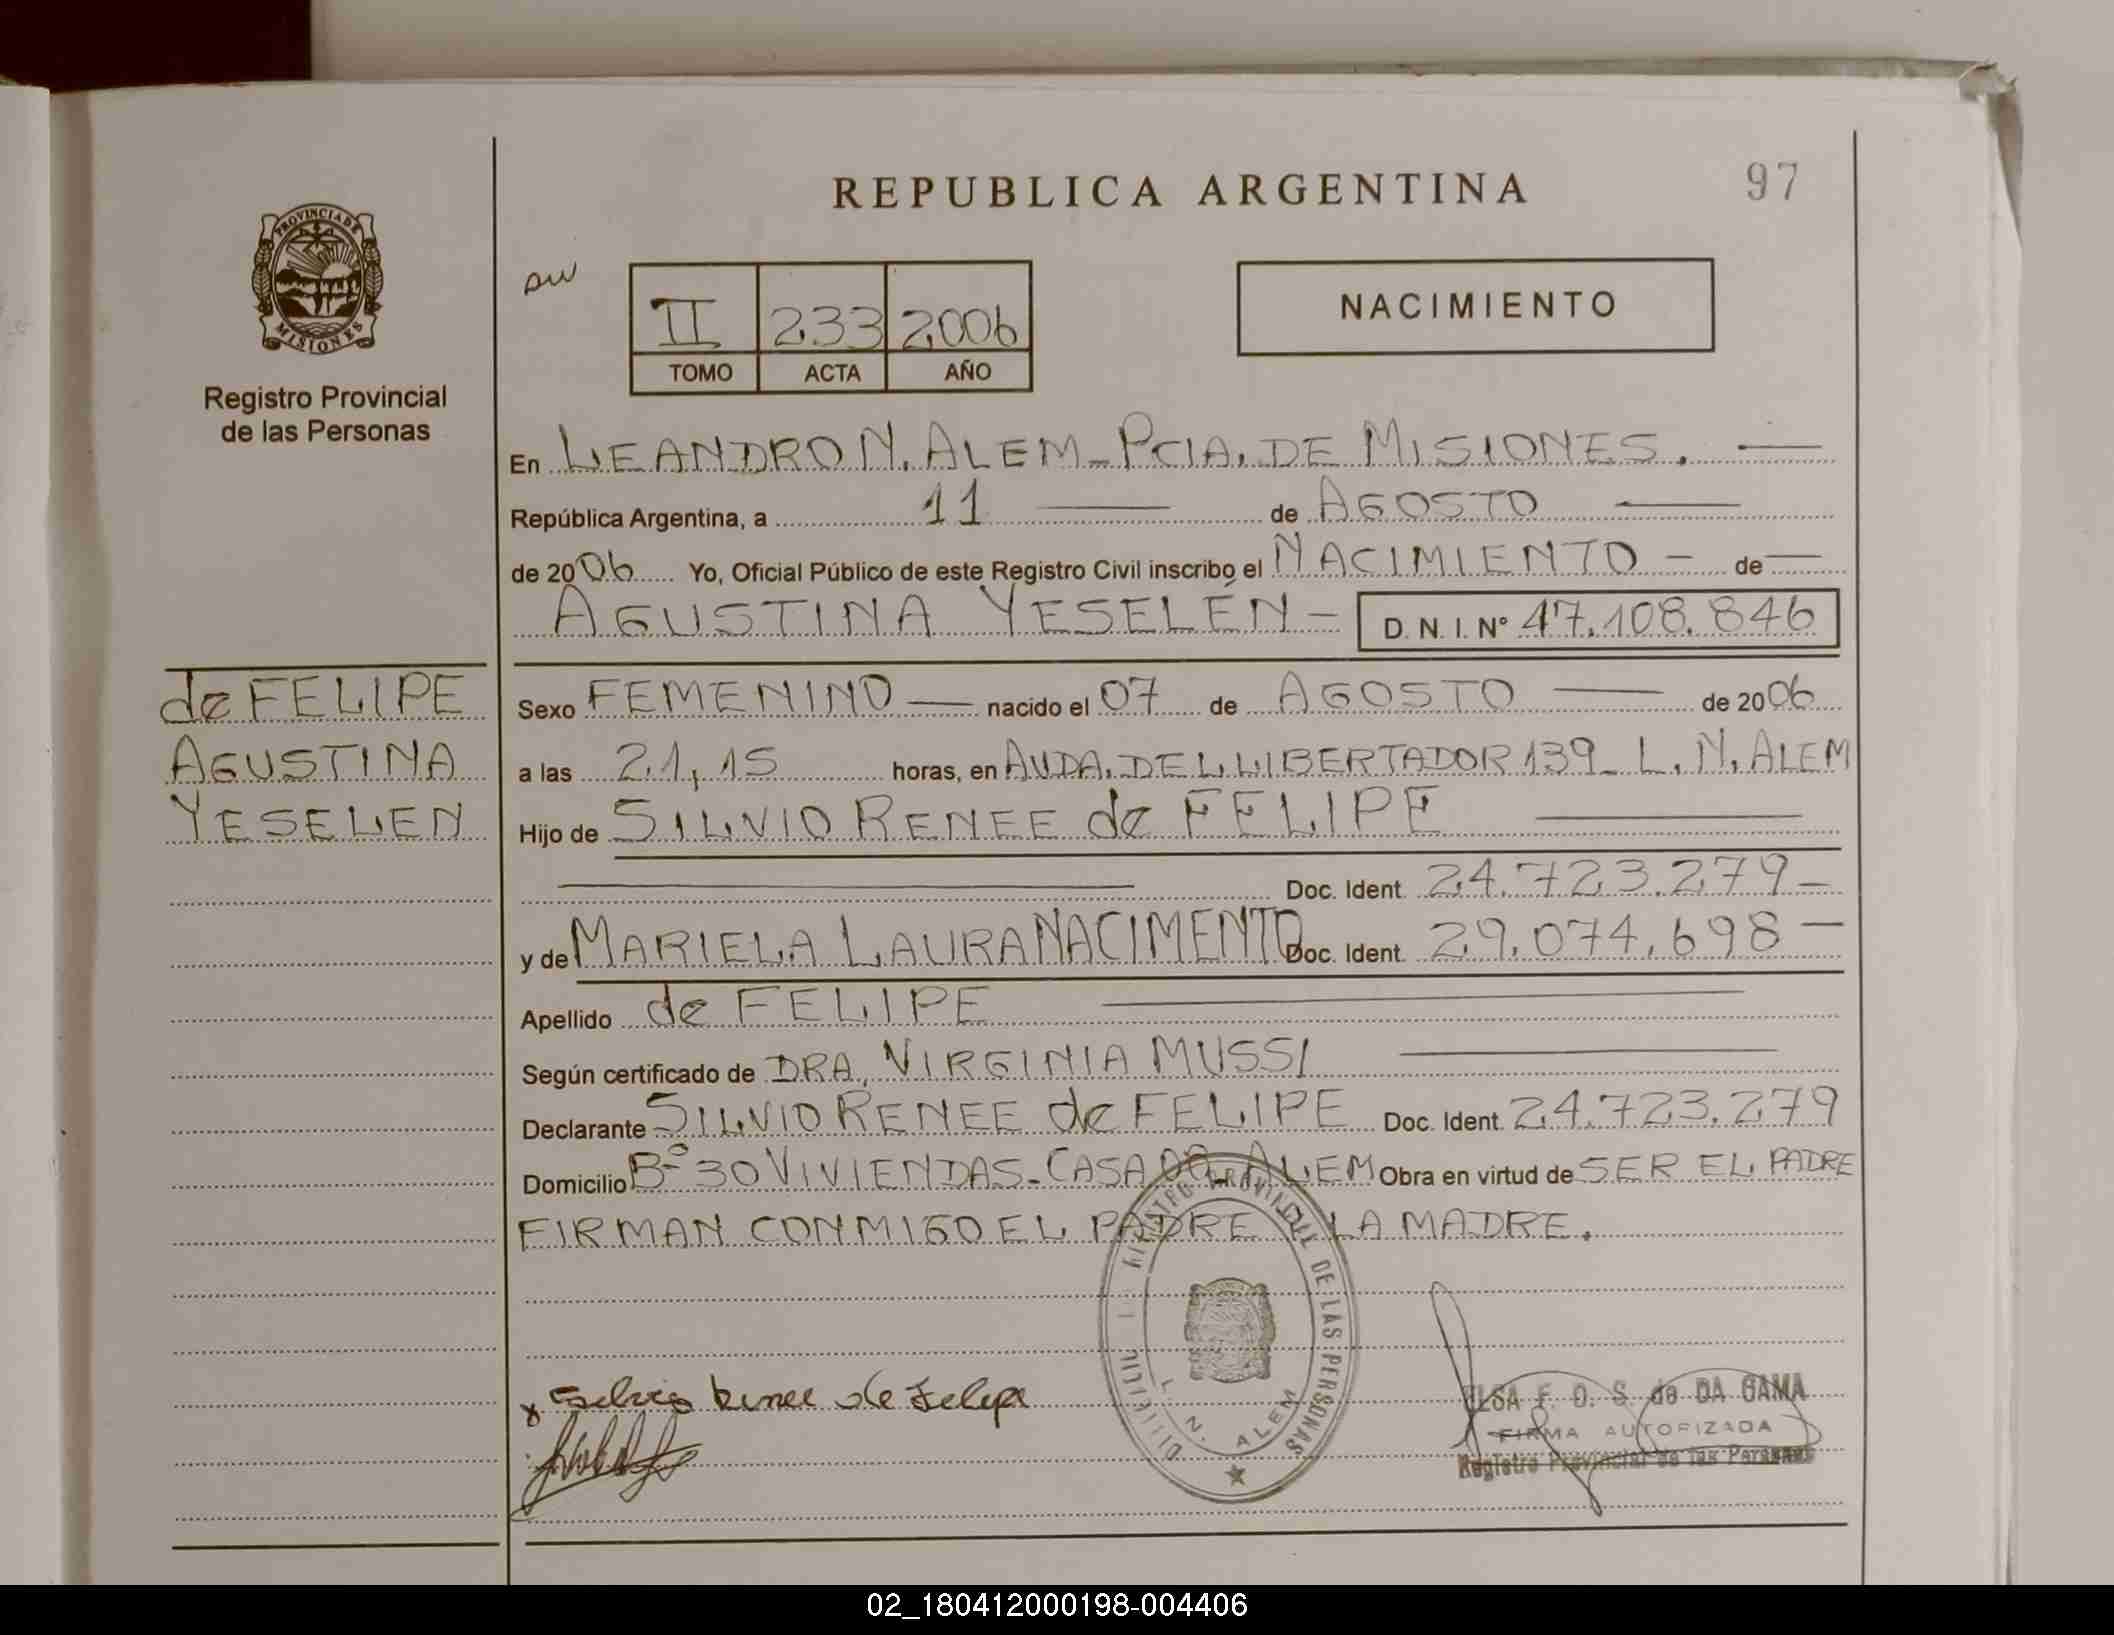 REPUBLICA ARGENTINA
97
PROVINCIA DE
MISIONES
Registro Provincial
de las Personas
II 233 2006
TOMO ACTA AÑO
NACIMIENTO
En LEANDRO N. ALEM - PCIA. DE MISIONES.
República Argentina, a 11 de AGOSTO
de 2006 Yo, Oficial Público de este Registro Civil inscribo el NACIMIENTO - de
AGUSTINA YESELÉN - D. N. I. N° 47.108.846
de FELIPE
AGUSTINA
YESELEN
Sexo FEMENINO nacido el 07 de AGOSTO de 2006
a las 21,15 horas, en AVDA. DEL LIBERTADOR 139 - L. N. ALEM
Hijo de SILVIO RENEE de FELIPE
Doc. Ident. 24.723.279 -
y de MARIELA LAURA NACIMENTO Doc. Ident. 29.074.698 -
Apellido de FELIPE
Según certificado de DRA. VIRGINIA MUSSI
Declarante SILVIO RENEE de FELIPE Doc. Ident. 24.723.279
Domicilio B° 30 VIVIENDAS - CASA ALEM Obra en virtud de SER EL PADRE
FIRMAN CONMIGO EL PADRE Y LA MADRE.
REGISTRO PROVINCIAL DE LAS PERSONAS
L. N. ALEM
x Silvio Renee de Felipe
ELSA F. O. S. de DA GAMA
FIRMA AUTORIZADA
Registro Provincial de las Personas
02_180412000198-004406